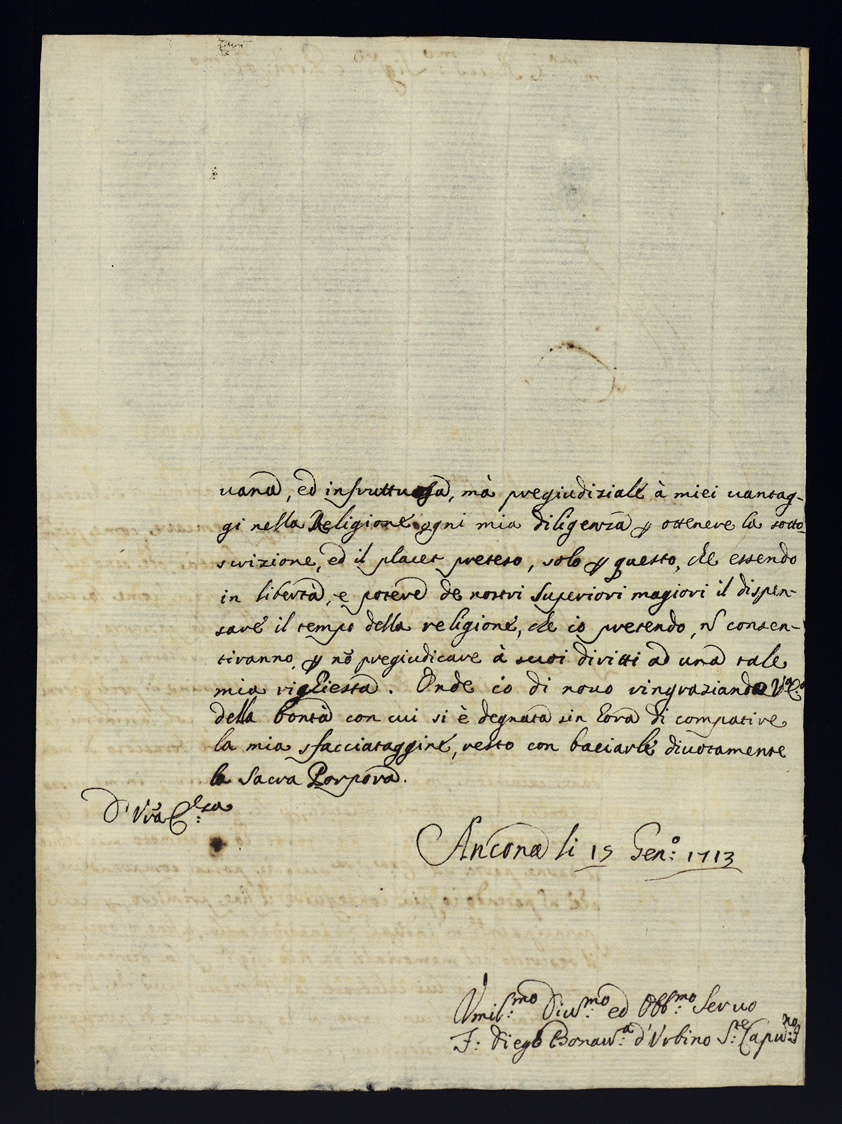 uana, ed infruttuosa, mà pregiudiziale à miei uantag-
gi nella Religione ogni mia diligenza ꝑ ottenere la sotto
scrizione, ed il placet preteso, solo ꝑ questo, che essendo
in libertà, e potere de nostri Superiori magiori il dispen-
sare il tempo della religione, che io pretendo, nõ consen-
tiranno, ꝑ nõ pregiudicare à suoi diritti ad una tale
mia richiesta. Onde io di nouo ringraziando
della bontà con cui si è degnata sin hora di compatire
la mia sfacciataggine, resto con baciarle diuotamente
la Sacra Porpora.
D' Vrã
Ancona li 15 Gen:º 1713
Vmil:mo Diuo:mo ed Obb:mo Seruo
F: Diego Bonau:ª d'Vrbino